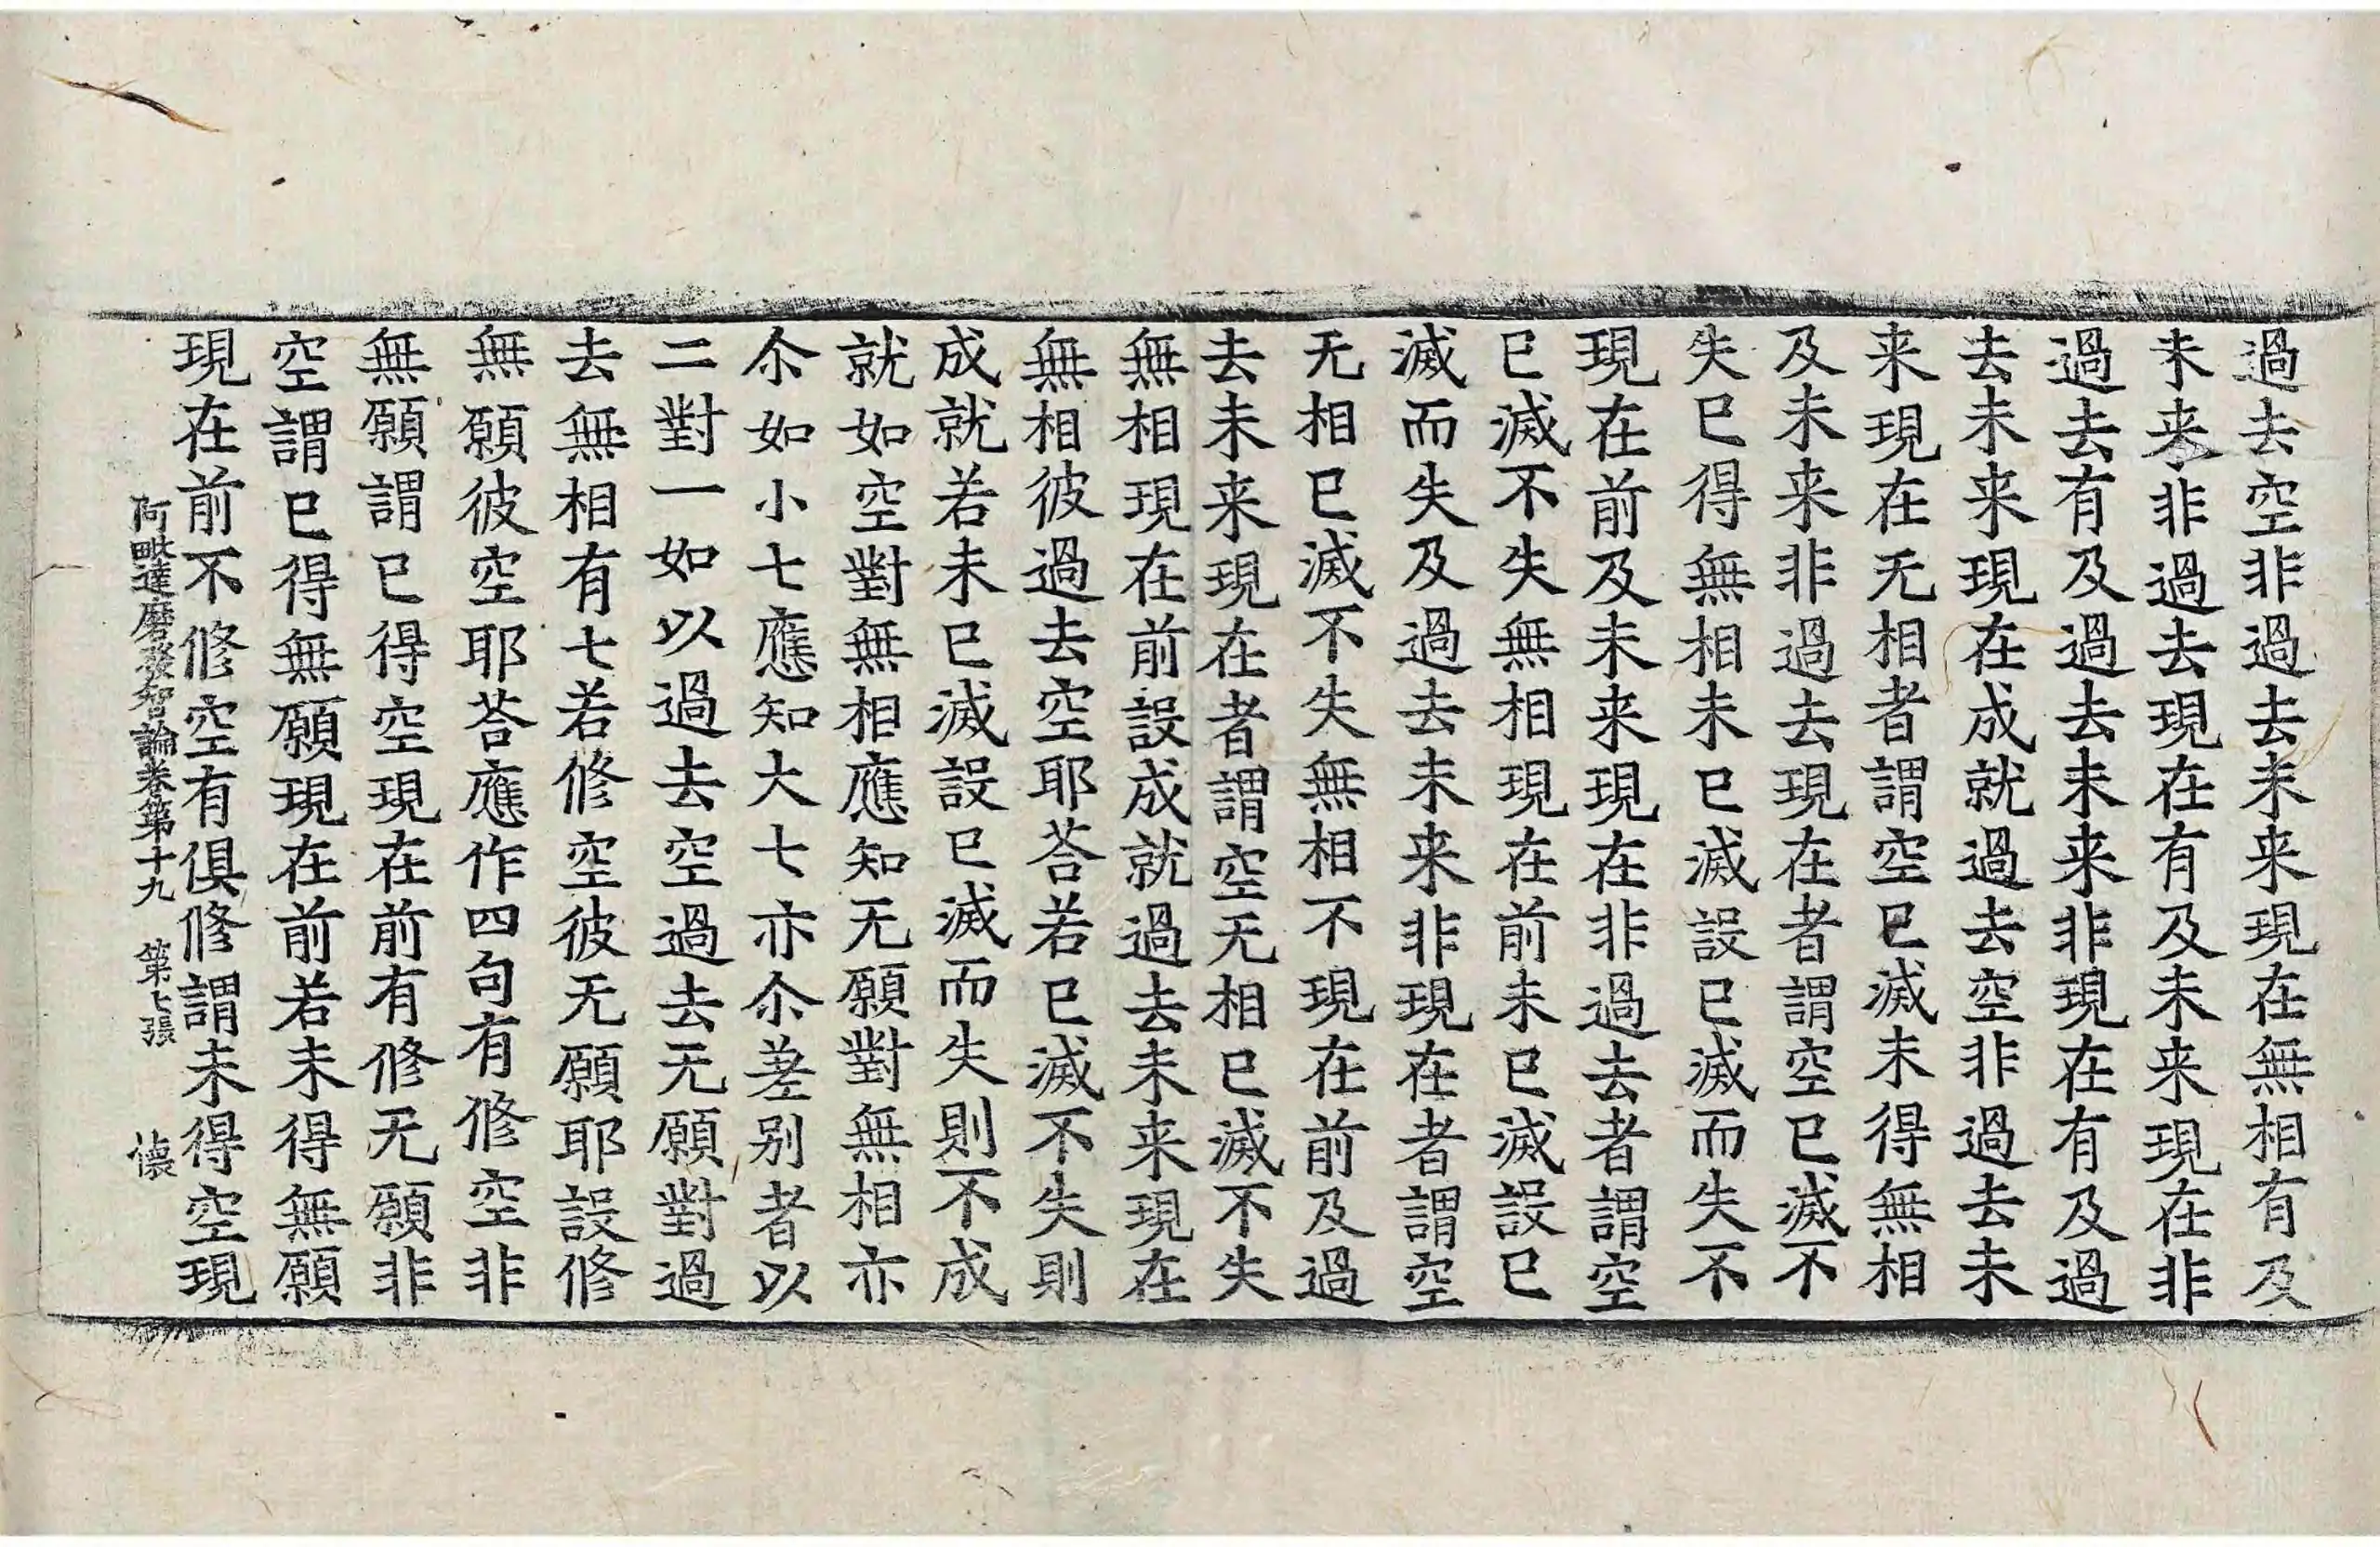 過去空非過去未来現在無相有及
未来非過去現在有及未来現在非
過去有及過去未来非現在有及過
去未来現在成就過去空非過去未
来現在无相者謂空已滅未得無相
及未来非過去現在者謂空已滅不
失已得無相未已滅設已滅而失不
現在前及未来現在非過去者謂空
已滅不失無相現在前未已滅設已
滅而失及過去未来非現在者謂空
无相已滅不失無相不現在前及過
去未来現在者謂空无相已滅不失
無相現在前設成就過去未来現在
無相彼過去空耶荅若已滅不失則
成就若未已滅設已滅而失則不成
就如空對無相應知无願對無相亦
尒如小七應知大七亦尒差别者以
二對一如以過去空過去无願對過
去無相有七若修空彼无願耶設修
無願彼空耶荅應作四句有修空非
無願謂已得空現在前有修无願非
空謂已得無願現在前若未得無願
現在前不修空有俱修謂未得空現
阿毗達磨發智論卷第十九　第七張　懷